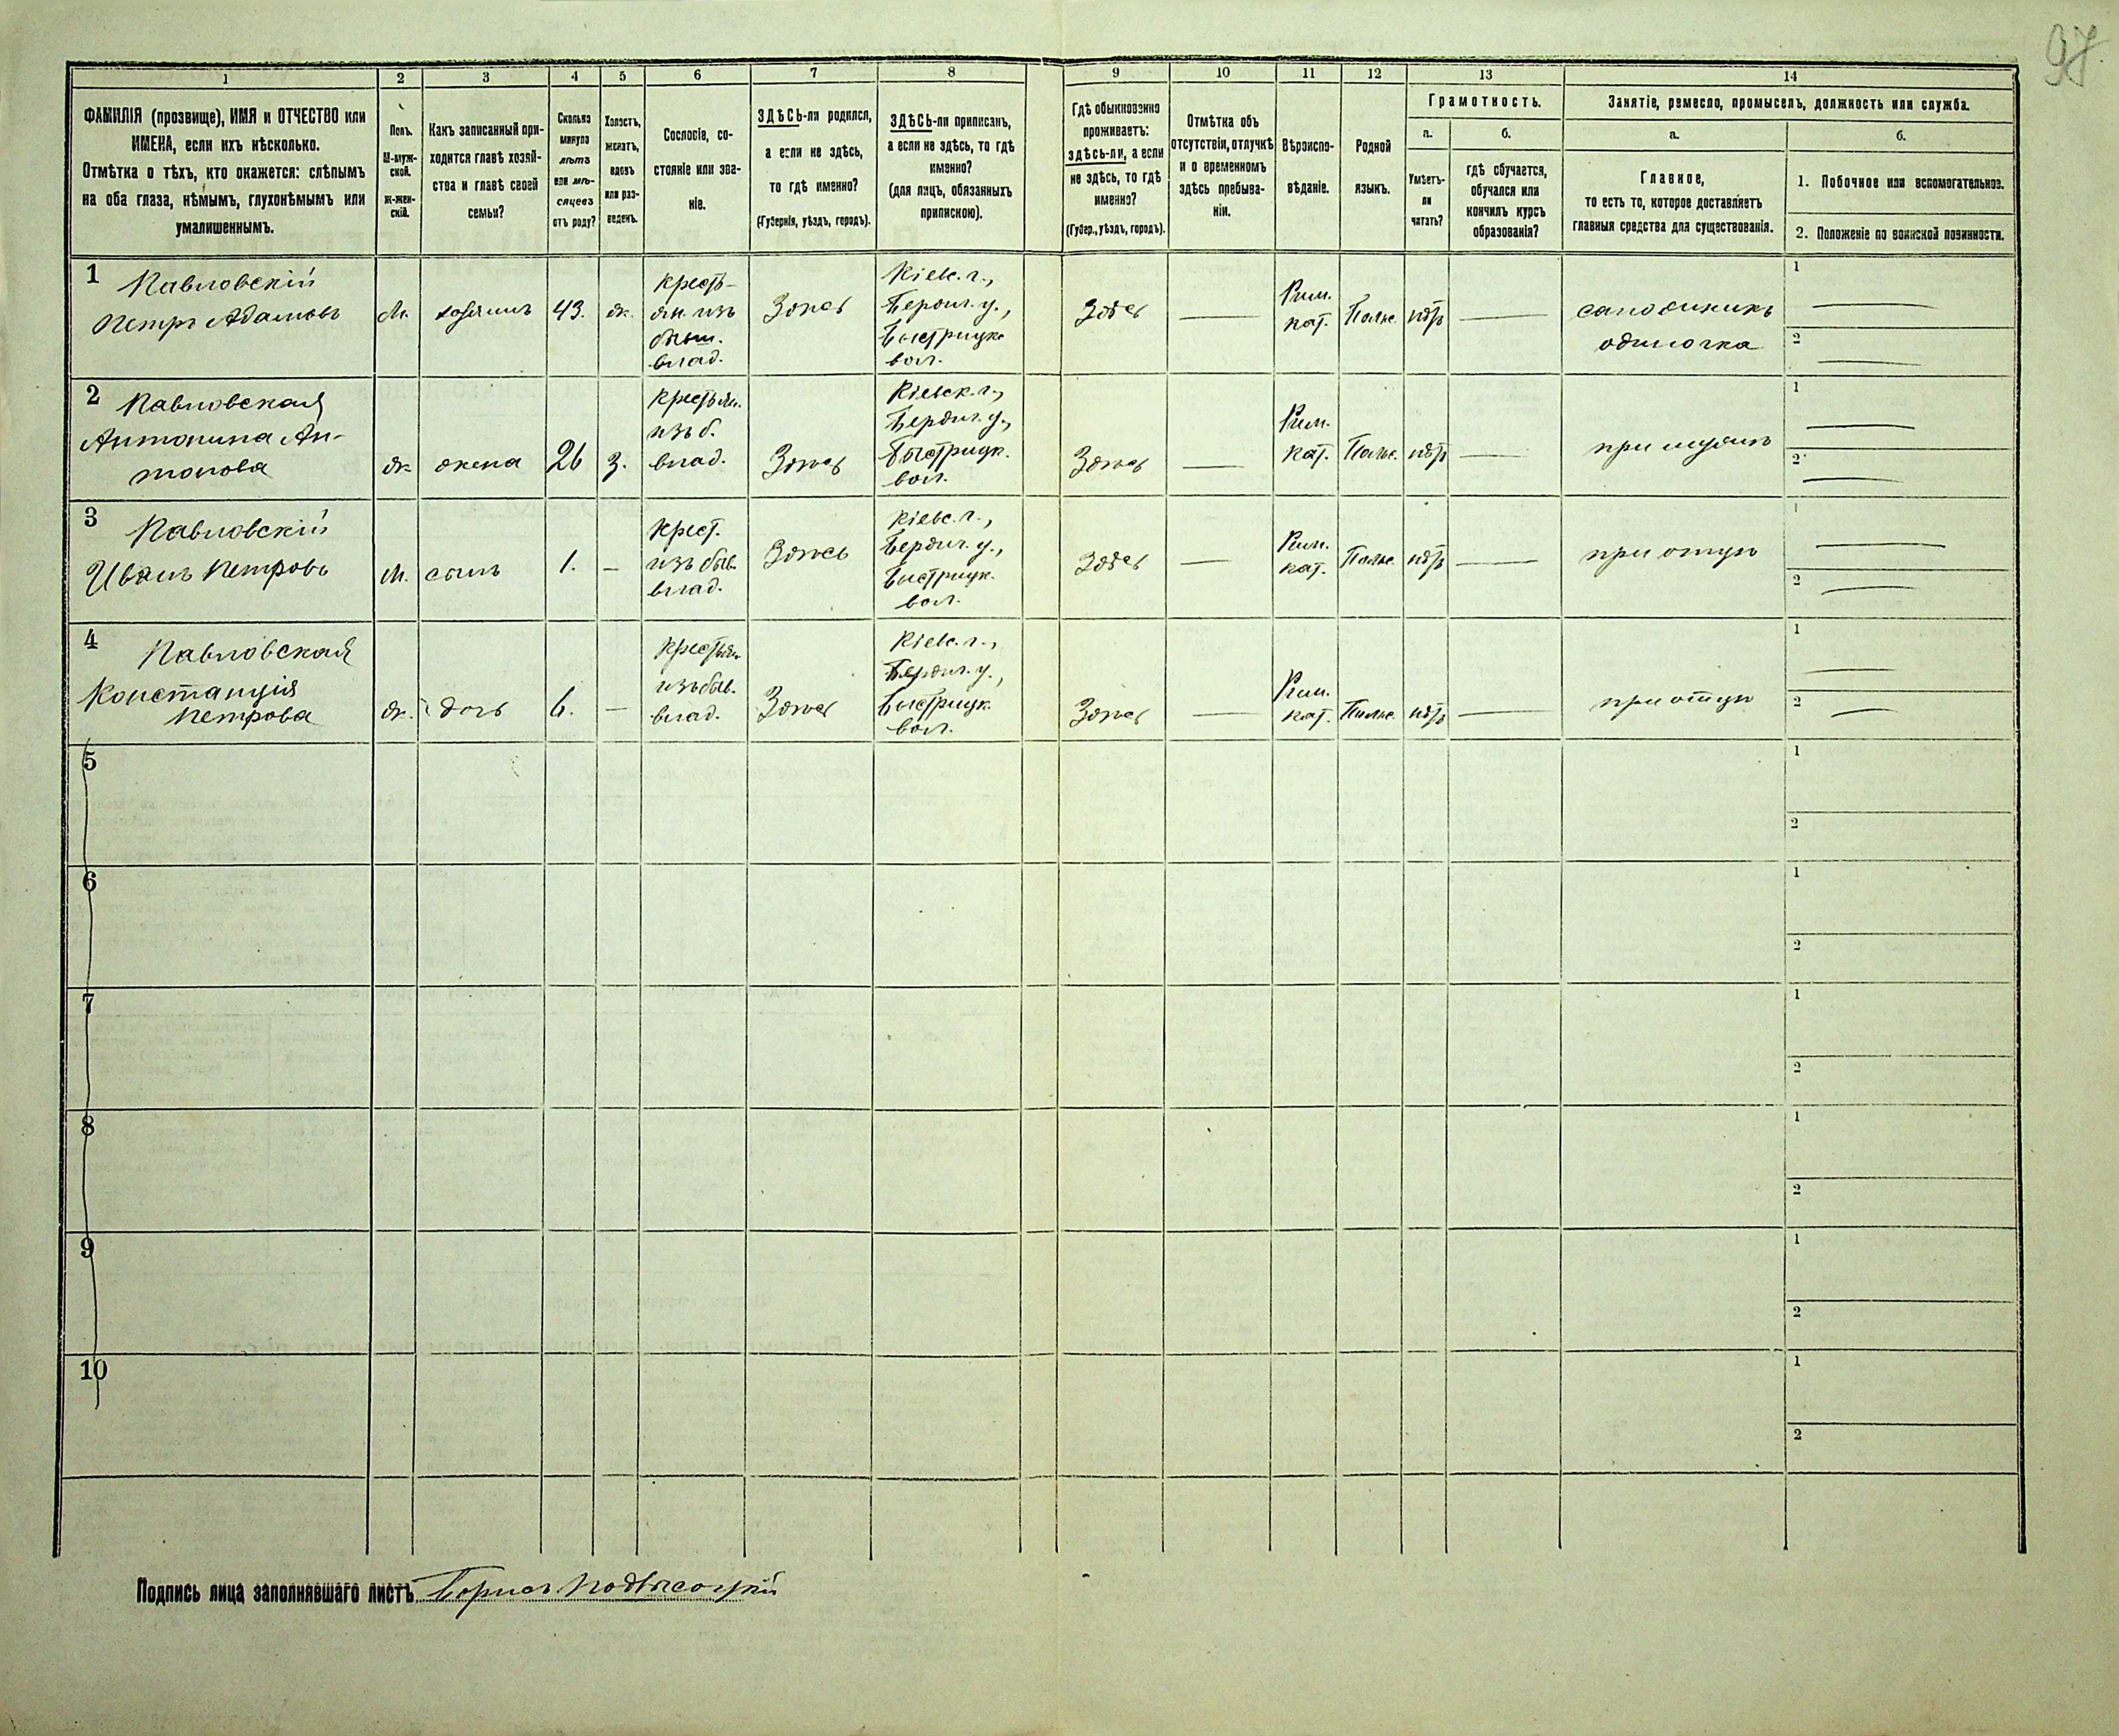 97.
1 2 3 4 5 6 7 8 9 10 11 12 13 14
ФАМИЛІЯ (прозвище), ИМЯ и ОТЧЕСТВО или
ИМЕНА, если ихъ нѣсколько.
Отмѣтка о тѣхъ, кто окажется: слѣпымъ
на оба глаза, нѣмымъ, глухонѣмымъ или
умалишеннымъ.
Полъ.
М-муж-
ской.
ж-жен-
скій.
Какъ записанный при-
ходится главѣ хозяй-
ства и главѣ своей
семьи?
Сколько
минуло
лѣтъ
или мѣ-
сяцевъ
отъ роду?
Холостъ,
женатъ,
вдовъ
или раз-
веденъ.
Сословіе, со-
стояніе или зва-
ніе.
ЗДѢСЬ-ли родился,
а если не здѣсь,
то гдѣ именно?
(Губернія, уѣздъ, городъ).
ЗДѢСЬ-ли приписанъ,
а если не здѣсь, то гдѣ
именно?
(для лицъ, обязанныхъ
припискою).
Гдѣ обыкновенно
проживаетъ:
здѣсь-ли, а если
не здѣсь, то гдѣ
именно?
(Губер., уѣздъ, городъ).
Отмѣтка объ
отсутствіи, отлучкѣ
и о временномъ
здѣсь пребыва-
ніи.
Вѣроиспо-
вѣданіе.
Родной
языкъ.
Грамотность.
а.
Умѣетъ-
ли
читать?
б.
гдѣ обучается,
обучался или
кончилъ курсъ
образованія?
Занятіе, ремесло, промыселъ, должность или служба.
а.
Главное,
то есть то, которое доставляетъ
главныя средства для существованія.
б.
1. Побочное или вспомогательное.
2. Положеніе по воинской повинности.
1 Павловскій
Петръ Адамовъ
М.
хозяинъ
43.
ж.
Кресть-
ян. изъ
бывш.
влад.
Здѣсь
Кіевс. г.,
Бердич. у.,
Быстрицк.
вол.
Здѣсь
Рим.
кат.
Польс.
нѣтъ
сапожникъ
одиночка
1
2
2 Павловская
Антонина Ан-
тонова
ж.
жена
26
з.
Крестьян.
изъ б.
влад.
Здѣсь
Кіевск. г.,
Бердич. у.,
Быстрицк.
вол.
Здѣсь
Рим.
кат.
Польс.
нѣтъ
при мужѣ
1
2
3 Павловскій
Иванъ Петровъ
М.
сынъ
1.
Крест.
изъ быв.
влад.
Здѣсь
Кіевс. г.,
Бердич. у.,
Быстрицк.
вол.
Здѣсь
Рим.
кат.
Польс.
нѣтъ
при отцѣ
1
2
4 Павловская
Констанція
Петрова
ж.
дочь
6.
Крестьян.
изъ быв.
влад.
Здѣсь
Кіевс. г.,
Бердич. у.,
Быстрицк.
вол.
Здѣсь
Рим.
кат.
Польс.
нѣтъ
при отцѣ
1
2
5
1
2
6
1
2
7
1
2
8
1
2
9
1
2
10
1
2
Подпись лица заполнявшаго листъ Борисъ Подвысоцкій